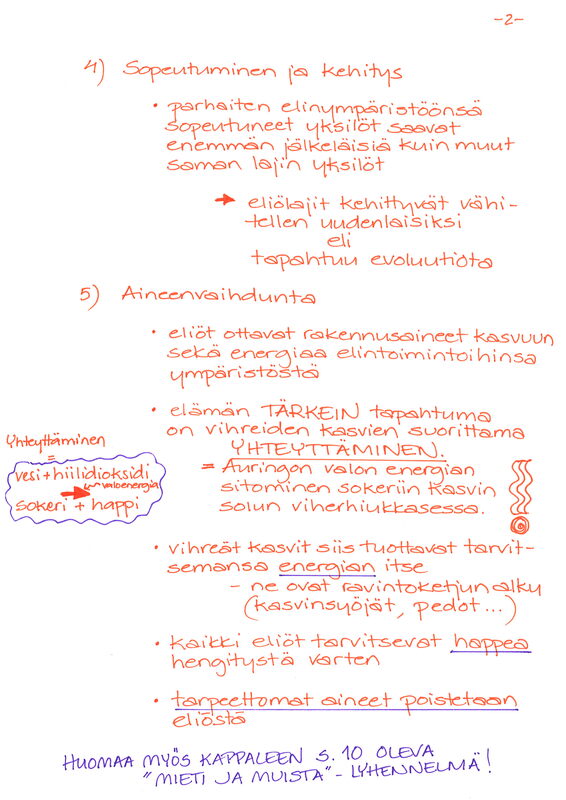 -2-
4) Sopeutuminen ja kehitys
• parhaiten elinympäristöönsä
sopeutuneet yksilöt saavat
enemmän jälkeläisiä kuin muut
saman lajin yksilöt
→ eliölajit kehittyvät vähi-
tellen uudenlaisiksi
eli
tapahtuu evoluutiota
5) Aineenvaihdunta
• eliöt ottavat rakennusaineet kasvuun
sekä energiaa elintoimintoihinsa
ympäristöstä
• elämän TÄRKEIN tapahtuma
on vihreiden kasvien suorittama
YHTEYTTÄMINEN.
= Auringon valon energian
sitominen sokeriin kasvin
solun viherhiukkasessa.
Yhteyttäminen
=
vesi + hiilidioksidi
→ valoenergia
sokeri + happi
• vihreät kasvit siis tuottavat tarvit-
semansa energian itse
- ne ovat ravintoketjun alku
(kasvinsyöjät, pedot...)
• kaikki eliöt tarvitsevat happea
hengitystä varten
• tarpeettomat aineet poistetaan
eliöstä
HUOMAA MYÖS KAPPALEEN S. 10 OLEVA
"MIETI JA MUISTA" - LYHENNELMÄ!